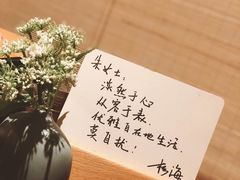 朱女士：
淡然于心
从容于表
优雅自在地生活
莫自扰！
杨海